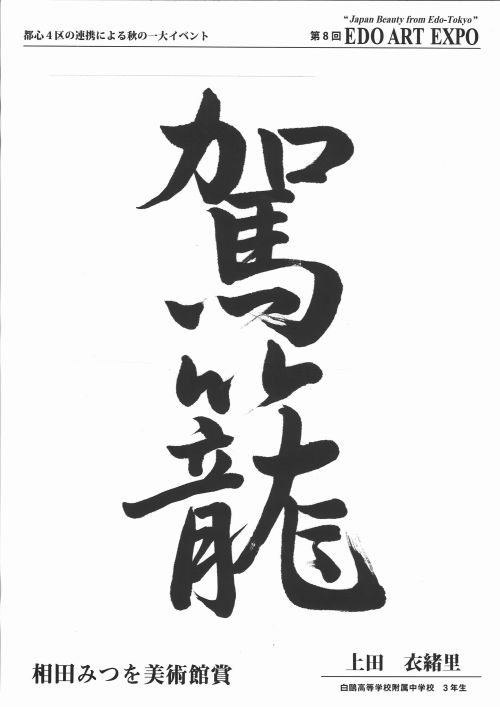 "Japan Beauty from Edo-Tokyo"
都心4区の連携による秋の一大イベント 第8回 EDO ART EXPO
駕籠
相田みつを美術館賞
上田 衣緒里
白鷗高等学校附属中学校 3年生